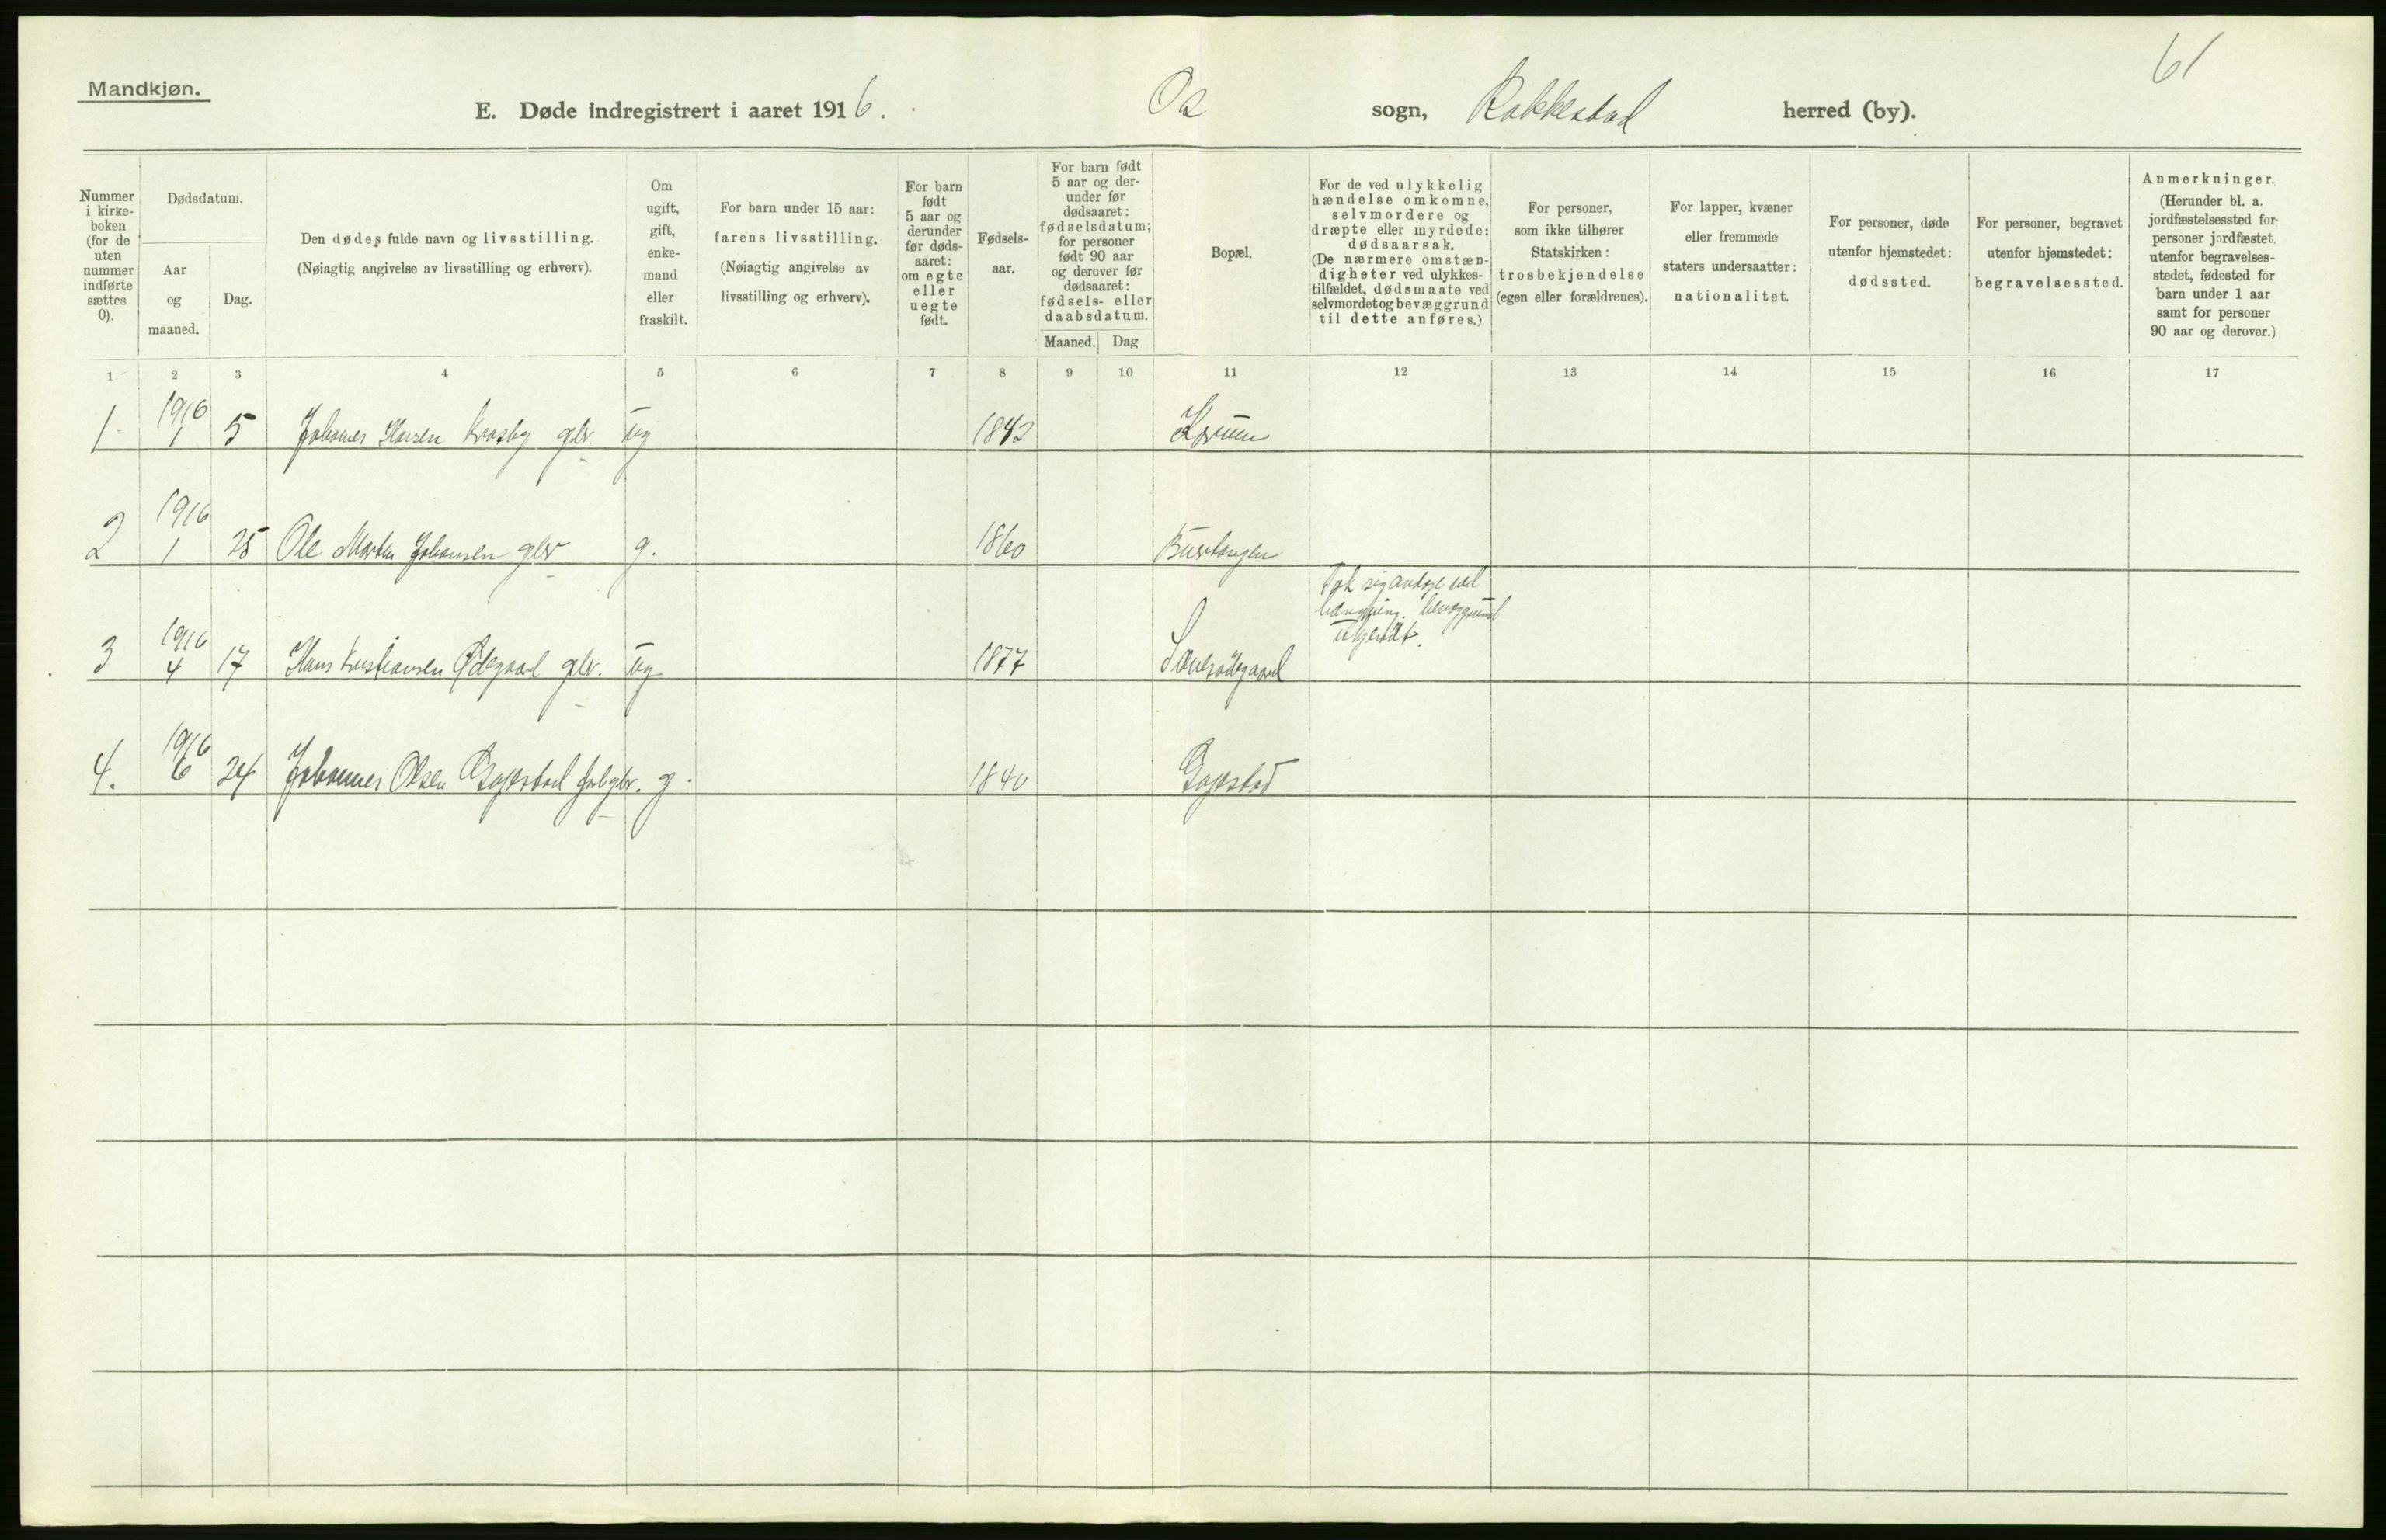 61
Mandkjøn.
E. Døde indregistrert i aaret 1916. Os sogn, Rakkestad herred (by).
Nummer i kirke-boken (for de uten nummer indførte sættes 0).
Dødsdatum.
Aar og maaned.
Dag.
Den dødes fulde navn og livsstilling.
(Nøiagtig angivelse av livsstilling og erhverv).
Om ugift, gift, enke-mand eller fraskilt.
For barn under 15 aar:
farens livsstilling.
(Nøiagtig angivelse av
livsstilling og erhverv).
For barn født 5 aar og derunder før døds-aaret: om egte eller uegte født.
Fødsels-aar.
For barn født 5 aar og der-under før dødsaaret: fødselsdatum; for personer født 90 aar og derover før dødsaaret: fødsels- eller daabsdatum.
Maaned. Dag
Bopæl.
For de ved ulykkelig hændelse omkomne, selvmordere og dræpte eller myrdede: dødsaarsak.
(De nærmere omstæn-digheter ved ulykkes-tilfældet, dødsmaate ved selvmordet og bevæggrund til dette anføres.)
For personer, som ikke tilhører Statskirken: trosbekjendelse (egen eller forældrenes).
For lapper, kvæner eller fremmede staters undersaatter: nationalitet.
For personer, døde utenfor hjemstedet: dødssted.
For personer, begravet utenfor hjemstedet: begravelsessted.
Anmerkninger.
(Herunder bl. a. jordfæstelsessted for personer jordfæstet utenfor begravelses-stedet, fødested for barn under 1 aar samt for personer 90 aar og derover.)
1 2 3 4 5 6 7 8 9 10 11 12 13 14 15 16 17
1 1916 1 5 Johannes Hansen gbr. ug 1842
2 1916 1 25 Ole Martin Johansen gbr g. 1860
Tok sig av dage ved
hængning. bevæggrund
ukjendt.
3 1916 4 17 Hans Kristiansen Ødegaard gbr. ug 1877
4. 1916 6 24 Johannes Olsen g. 1840